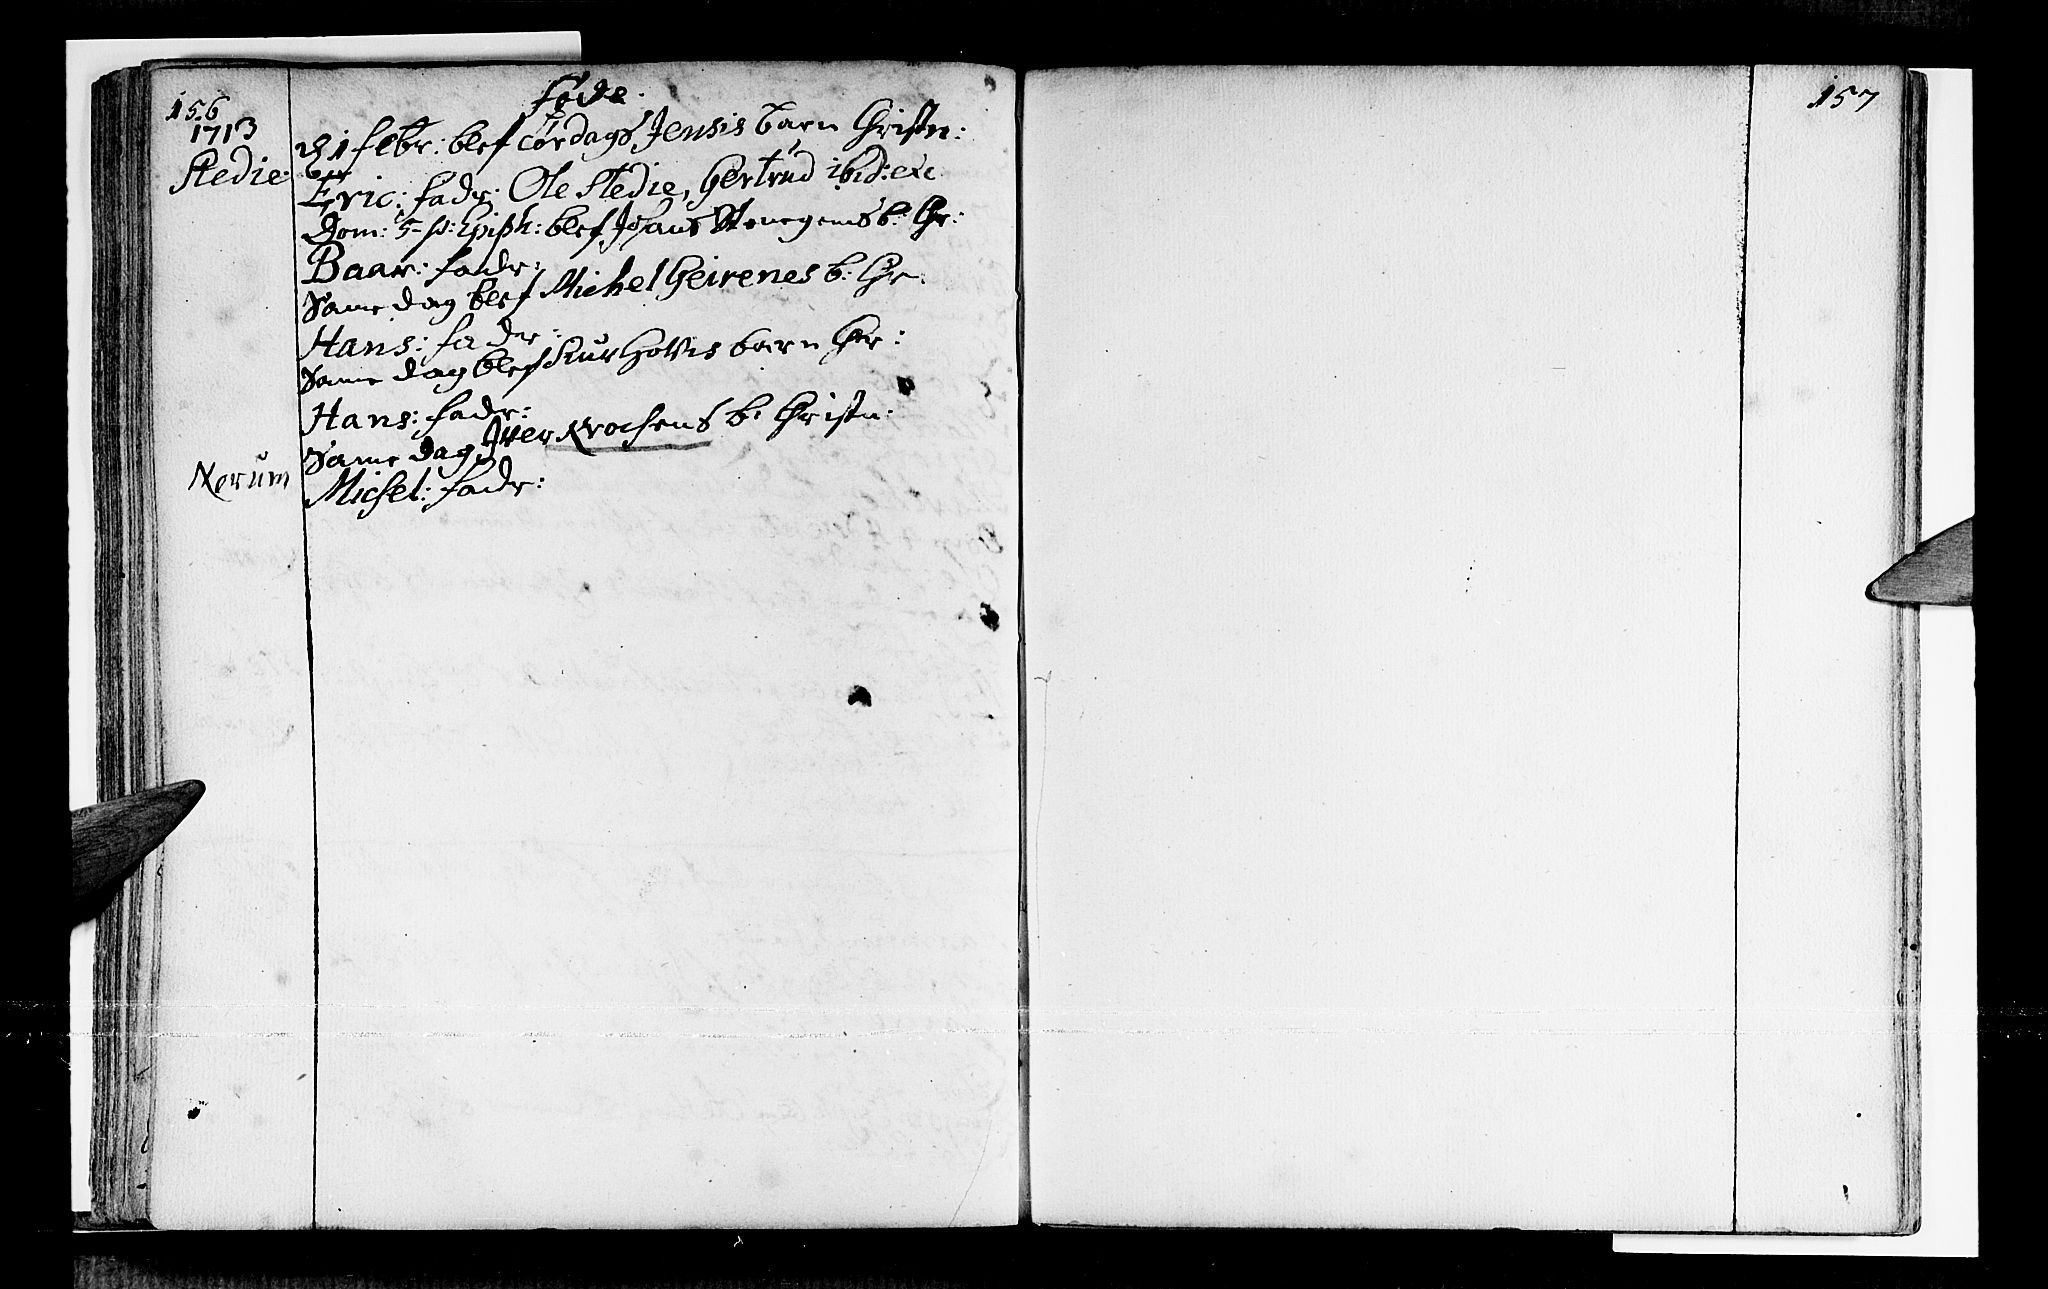 156
føde.
1713
Stedie:
d 1 febr: blef Lørdags Jensis barn Christn:
Eric: fadr: Ole Stedie, Gertrud ibid: etc
Dom: 5 p: Epiph: blef Johans b: Chr:
Baar: fadr:
Same dag blef Michel Heirenes b: Chr:
Hans: fadr:
Same dag blef Kurhovis barn Chr:
Hans: fadr:
Same dag Iver b: Christn:
Nerum
Michel: fadr:
157